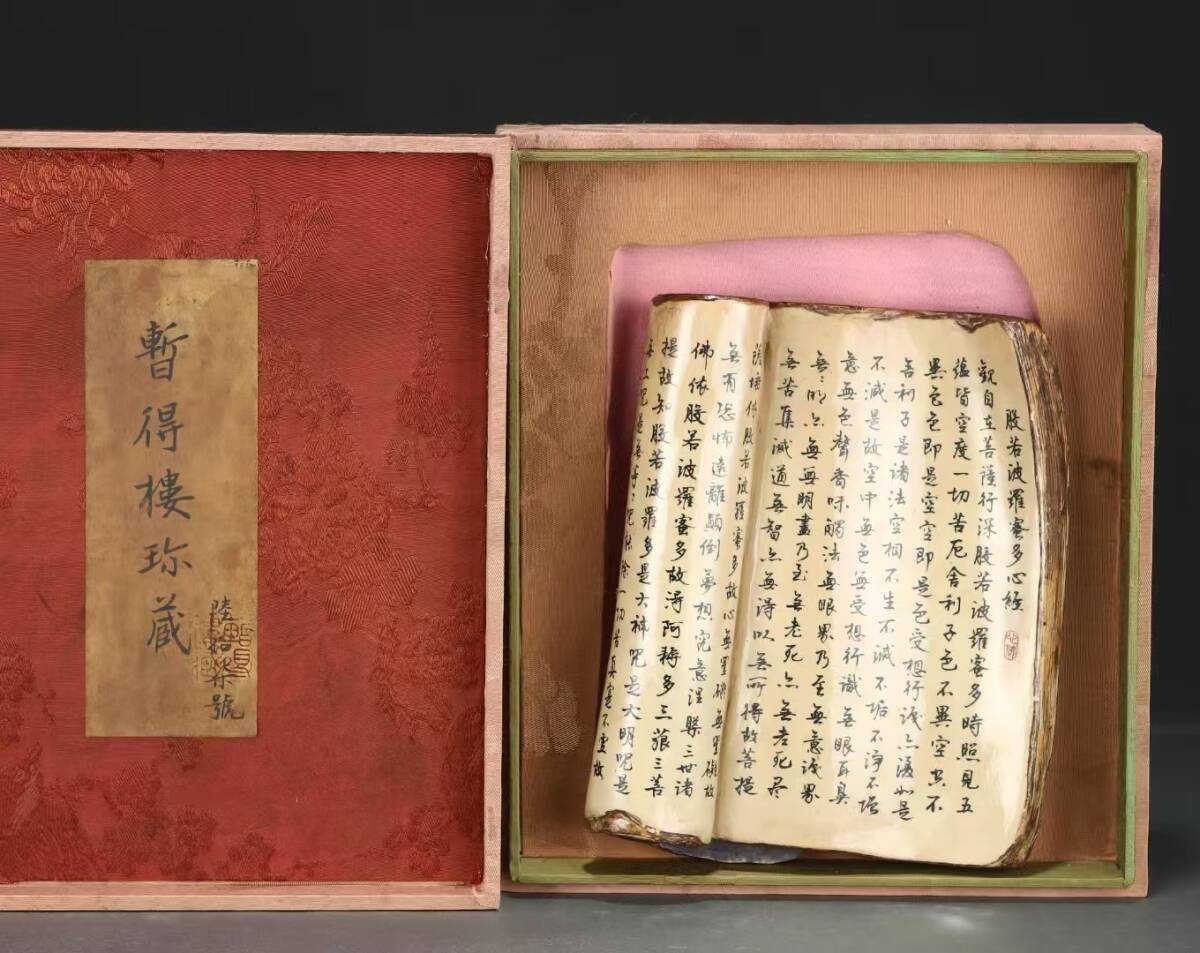 暫得樓珍藏
陸拾柒號
般若波羅蜜多心經
觀自在菩薩行深般若波羅蜜多時照見五
蘊皆空度一切苦厄舍利子色不異空空不
異色色即是空空即是色受想行識亦復如是
舍利子是諸法空相不生不滅不垢不淨不增
不減是故空中無色無受想行識無眼耳鼻
意無色聲香味觸法無眼界乃至無意識界
無〻明亦無無明盡乃至無老死亦無老死盡
無苦集滅道無智亦無得以無所得故菩提
薩埵依般若波羅蜜多故心無罣礙無罣礙故
無有恐怖遠離顛倒夢想究竟涅槃三世諸
佛依般若波羅蜜多故得阿耨多三藐三菩
提故知般若波羅多是大神咒是大明咒是
無上咒是無等〻咒能除一切苦真實不虛故